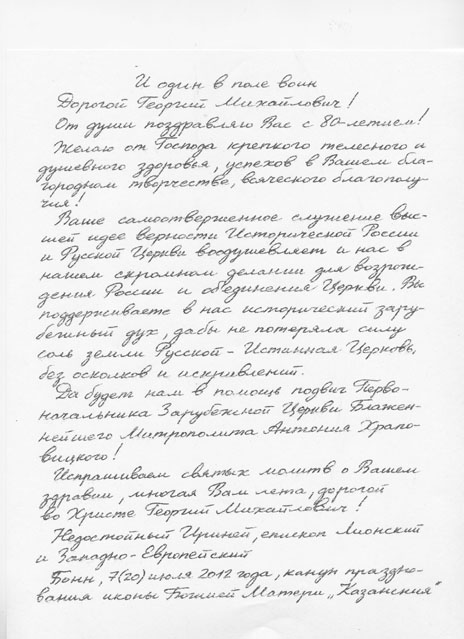 И один в поле воин
Дорогой Георгий Михайлович!
От души поздравляю Вас с 80-летием!
Желаю от Господа крепкого телесного и
душевного здоровья, успехов в Вашем бла-
городном творчестве, всяческого благополу-
чия!
Ваше самоотверженное служение выс-
шей идее верности Исторической России
и Русской Церкви воодушевляет и нас в
нашем скромном делании для возрож-
дения России и объединения Церкви. Вы
поддерживаете в нас исторический зару-
бежный дух, дабы не потеряла силу
соль земли Русской - Истинная Церковь,
без осколков и искривлений.
Да будет нам в помощь подвиг Перво-
начальника Зарубежной Церкви Блажен-
нейшего Митрополита Антония Храпо-
вицкого!
Испрашиваем святых молитв о Вашем
здравии, многая Вам лета, дорогой
во Христе Георгий Михайлович!
Недостойный Ириней, епископ Лионский
и Западно-Европейский
Бонн, 7(20) июля 2012 года, канун праздно-
вания иконы Божией Матери „Казанския"